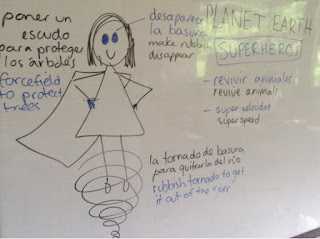 poner un
escudo
para proteger
los árboles
forcefield
to protect
trees
desaparecer
la basura
make rubbish
disappear
PLANET EARTH
SUPERHEROS
- revivir animales
revive animals
- super velocidad
superspeed
la tornado de basura
para quitarla del río
rubbish tornado to get
it out of the river